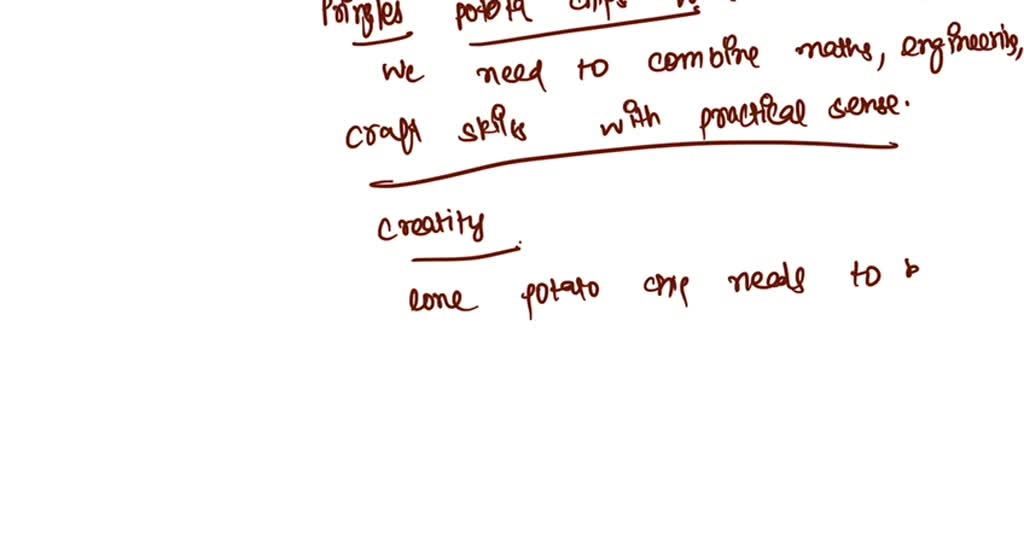 Pringles potota chips
We need to combine maths, engineering,
craft skills with practical sense.
creatity
lone potato chip needs to b